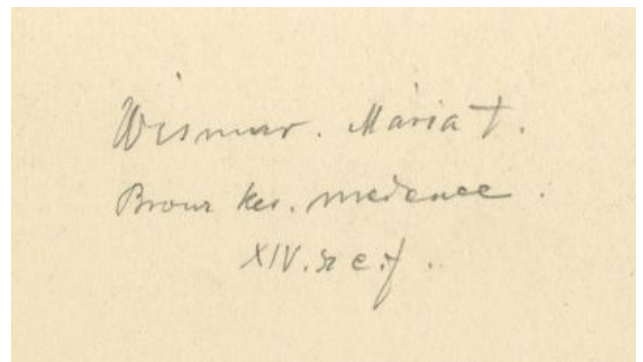 Wismar. Mária t.
Bronz ker. medence.
XIV. sz. e. f.